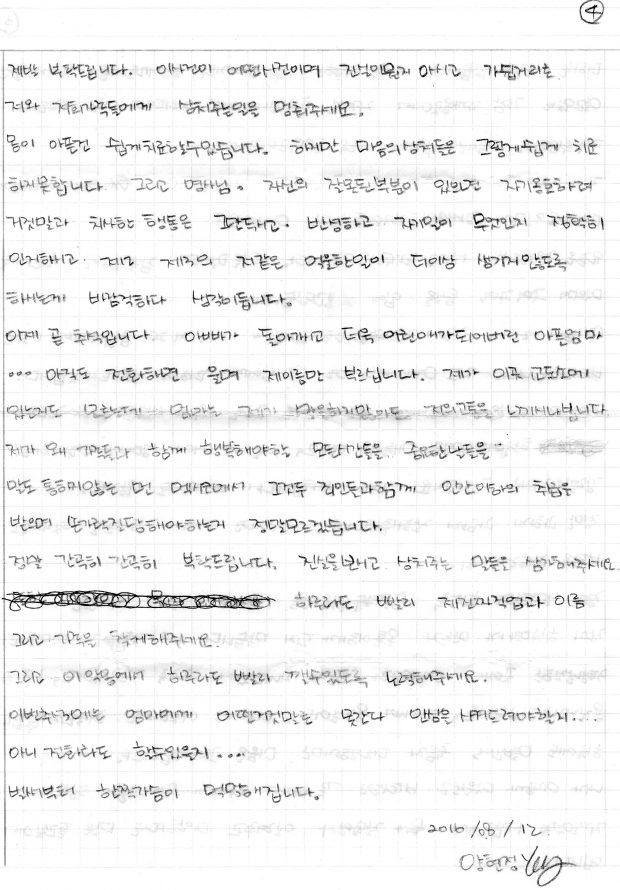 ④
제발 부탁드립니다. 이사건이 어떤사건이며 진실이뭔지 아시고 가십거리로
저와 저희가족들에게 상처주는일을 멈춰주세요.
몸이 아픈건 쉽게치료할수있습니다. 하지만 마음의상처들은 그렇게쉽게 치료
하지못합니다. 그리고 영사님. 자신의 잘못된부분이 있으면 자기옹호하려
거짓말과 치사한 행동은 그만두시고. 반성하고 자기일이 무엇인지 정확히
인지하고. 제2 제3의 저같은 억울한일이 더이상 생기지않도록
하시는게 바람직하다 생각이듭니다.
이제 곧 추석입니다. 아빠가 돌아가시고 더욱 어린애가되어버린 아픈엄마
... 아직도 전화하면 울며 제이름만 부르십니다. 제가 이곳 교도소에
있는지도 모르는데 엄마는 제가 말을하지않아도 저의고통을 느끼시나봅니다
제가 왜 가족들과 함께 행복해야할 모든시간들을 중요한날들을
말도 통하지않는 먼 멕시코에서 그것두 죄인들과함께 인간이하의 취급을
받으며 손가락질당해야하는지 정말모르겠습니다.
정말 간곡히 간곡히 부탁드립니다. 진실을보시고 상처주는 말들은 삼가해주세요.
하루라도 빨리 제전직업과 이름
그리고 가족을 삭제해주세요.
그리고 이 악몽에서 하루라도 빨리 깰수있도록 노력해주세요.
이번추석에는 엄마에게 어떤거짓말로 못간다 안심을시켜드려야할지...
아니 전화라도 할수있을지...
벌써부터 한쪽가슴이 먹먹해집니다.
2016/08/12.
양현정